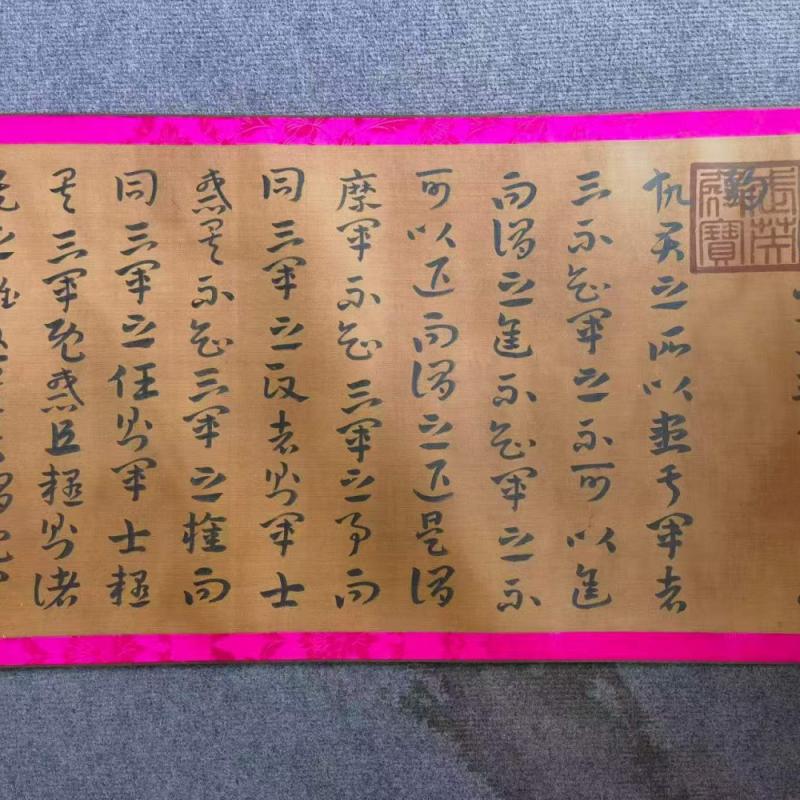 故君之所以患於軍者
三不知軍之不可以進
而謂之進不知軍之不
可以退而謂之退是謂
縻軍不知三軍之事而
同三軍之政者則軍士
惑矣不知三軍之權而
同三軍之任則軍士疑
矣三軍既惑且疑則諸
侯之難